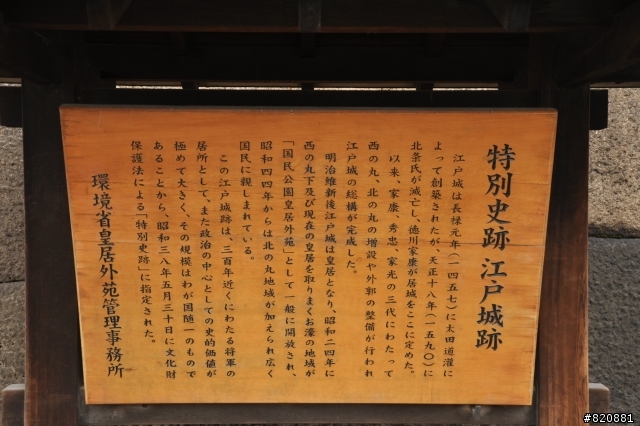 特別史跡 江戸城跡
江戸城は長禄元年(一四五七)に太田道灌に
よって創築されたが、天正十八年(一五九〇)に
北条氏が滅亡し、徳川家康が居城をここに定めた。
以来、家康、秀忠、家光の三代にわたって
西の丸、北の丸の増設や外郭の整備が行われ
江戸城の総構が完成した。
明治維新後江戸城は皇居となり、昭和二四年に
西の丸下及び現在の皇居を取りまくお濠の地域が
「国民公園皇居外苑」として一般に開放され、
昭和四四年からは北の丸地域が加えられ広く
国民に親しまれている。
この江戸城跡は、三百年近くにわたる将軍の
居所として、また政治の中心としての史的価値が
極めて大きく、その規模はわが国随一のもので
あることから、昭和三八年五月三十日に文化財
保護法による「特別史跡」に指定された。
環境省皇居外苑管理事務所
#820881